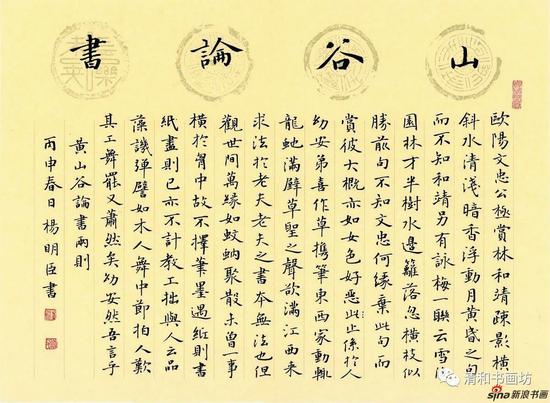 山谷論書
歐陽文忠公極賞林和靖疎影橫
斜水清淺暗香浮動月黃昏之句
而不知和靖另有詠梅一聯云雪後
園林才半樹水邊籬落忽橫枝似
勝前句不知文忠何緣棄此句而
賞彼大概亦如女色好惡此止係於人
幼安弟喜作草攜筆東西家動輒
龍蛇滿壁草聖之聲欲滿江西來
求法於老夫老夫之書本無法也但
觀世間萬緣如蚊蚋聚散未曾一事
橫於胷中故不擇筆墨遇紙則書
紙盡則已亦不計教工拙與人之品
藻譏彈譬如木人舞中節拍人歎
其工舞罷又蕭然矣幼安然吾言乎
黃山谷論書兩則
丙申春日楊明臣書
清和书画坊
sina新浪书画